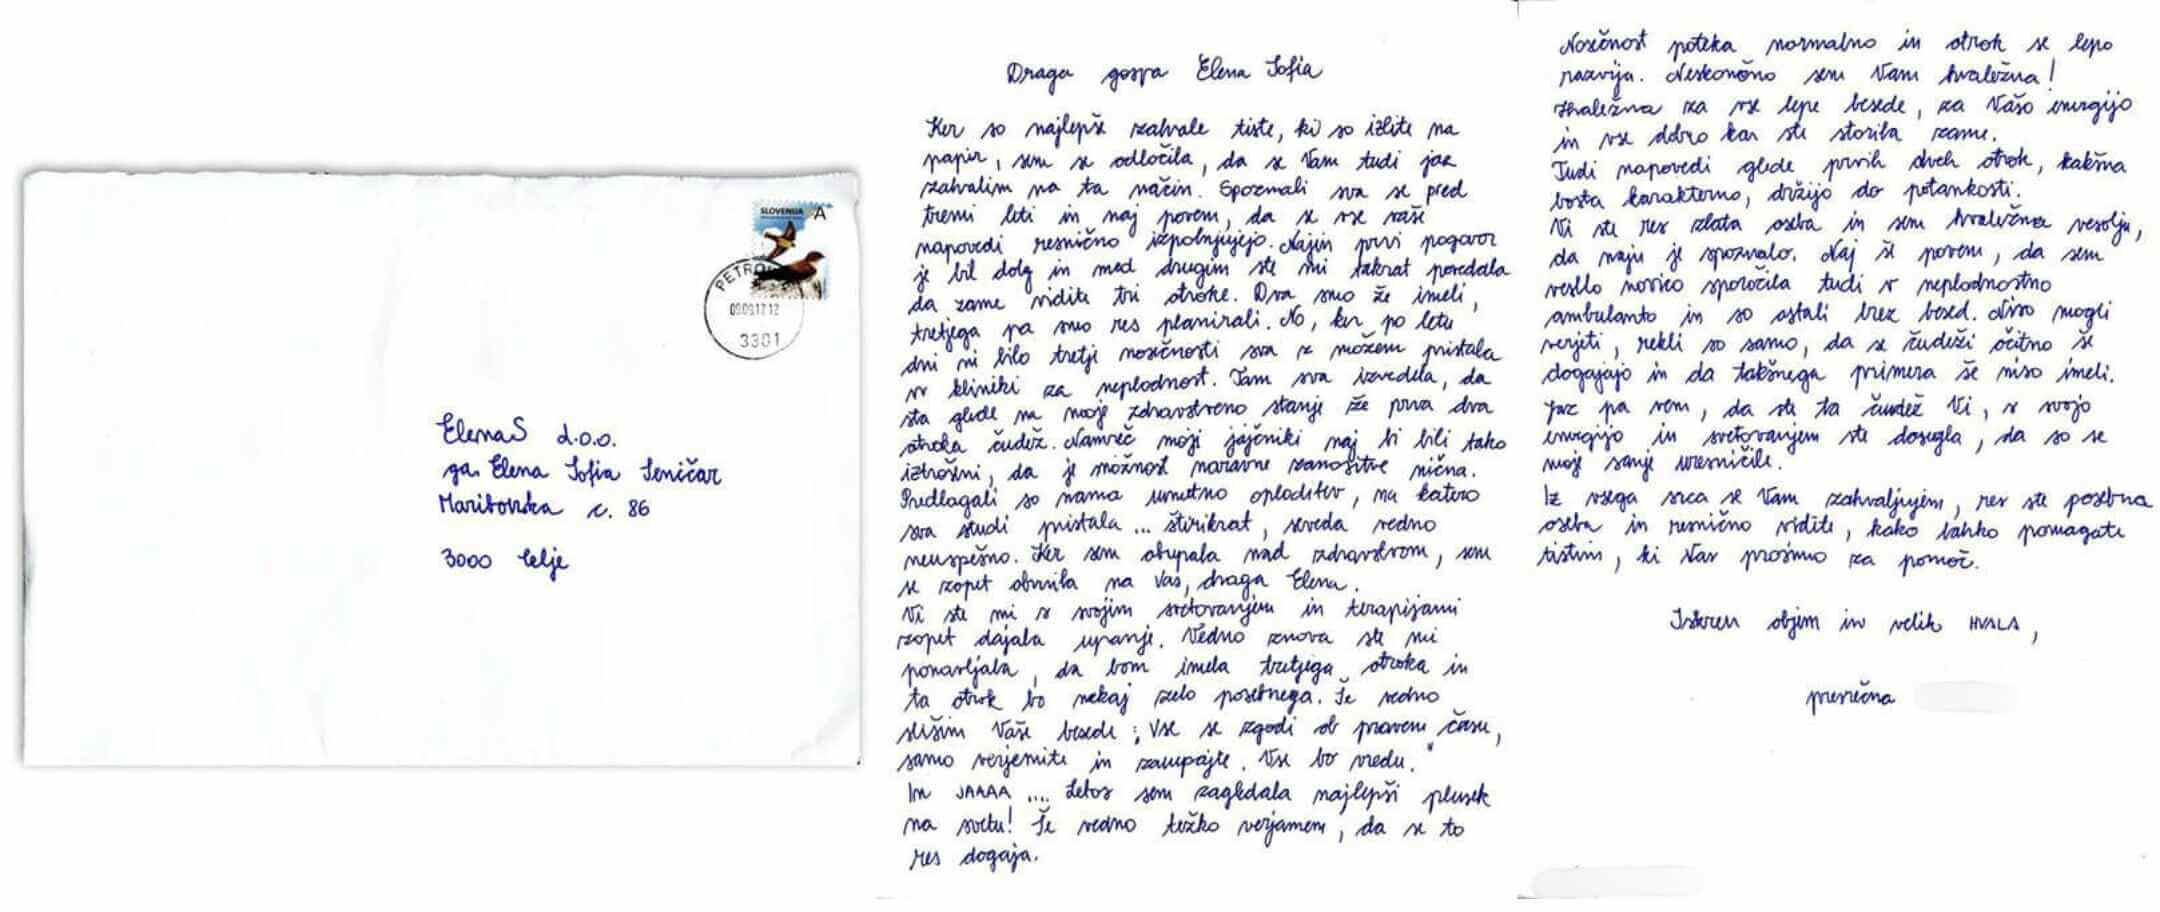 SLOVENIJA A
PETRO
09.09.17 12
3301
ElenaS d.o.o.
ga. Elena Sofia Seničar
Mariborska c. 86
3000 Celje
Draga gospa Elena Sofia
Ker so najlepše zahvale tiste, ki so izlite na
papir, sem se odločila, da se Vam tudi jaz
zahvalim na ta način. Spoznali sva se pred
tremi leti in naj povem, da se vse vaše
napovedi resnično izpolnjujejo. Najin prvi pogovor
je bil dolg in med drugim ste mi takrat povedala
da zame vidite tri otroke. Dva smo že imeli,
tretjega pa smo res planirali. No, ker po letu
dni ni bilo tretje nosečnosti sva z možem pristala
v kliniki za neplodnost. Tam sva izvedela, da
sta glede na moje zdravstveno stanje že prva dva
otroka čudež. Namreč moji jajčniki naj bi bili tako
iztrošeni, da je možnost naravne zanositve nična.
Predlagali so nama umetno oploditev, na katero
sva studi pristala ... štirikrat, seveda vedno
neuspešno. Ker sem obupala nad zdravstvom, sem
se zopet obrnila na Vas, draga Elena.
Vi ste mi s svojim svetovanjem in terapijami
zopet dajala upanje. Vedno znova ste mi
ponavljala, da bom imela tretjega otroka in
ta otrok bo nekaj zelo posebnega. Še vedno
slišim Vaše besede ; Vse se zgodi ob pravem času,
samo verjemite in zaupajte. Vse bo vredu."
In JAAAA .... Letos sem zagledala najlepši plusek
na svetu! Še vedno težko verjamem, da se to
res dogaja.
Nosečnost poteka normalno in otrok se lepo
razvija. Neskončno sem Vam hvaležna!
Hvaležna za vse lepe besede, za Vašo energijo
in vse dobro kar ste storila zame.
Tudi napovedi glede prvih dveh otrok, kakšna
bosta karakterno, držijo do potankosti.
Vi ste res zlata oseba in sem hvaležna vesolju,
da naju je spoznalo. Naj še povem, da sem
veselo novico sporočila tudi v neplodnostno
ambulanto in so ostali brez besed. Niso mogli
verjeti, rekli so samo, da se čudeži očitno še
dogajajo in da takšnega primera še niso imeli.
Jaz pa vem, da ste ta čudež Vi, s svojo
energijo in svetovanjem ste dosegla, da so se
moje sanje uresničile.
Iz vsega srca se Vam zahvaljujem, res ste posebna
oseba in resnično vidite, kako lahko pomagate
tistim, ki Vas prosimo za pomoč.
Iskren objem in velik HVALA,
presrečna